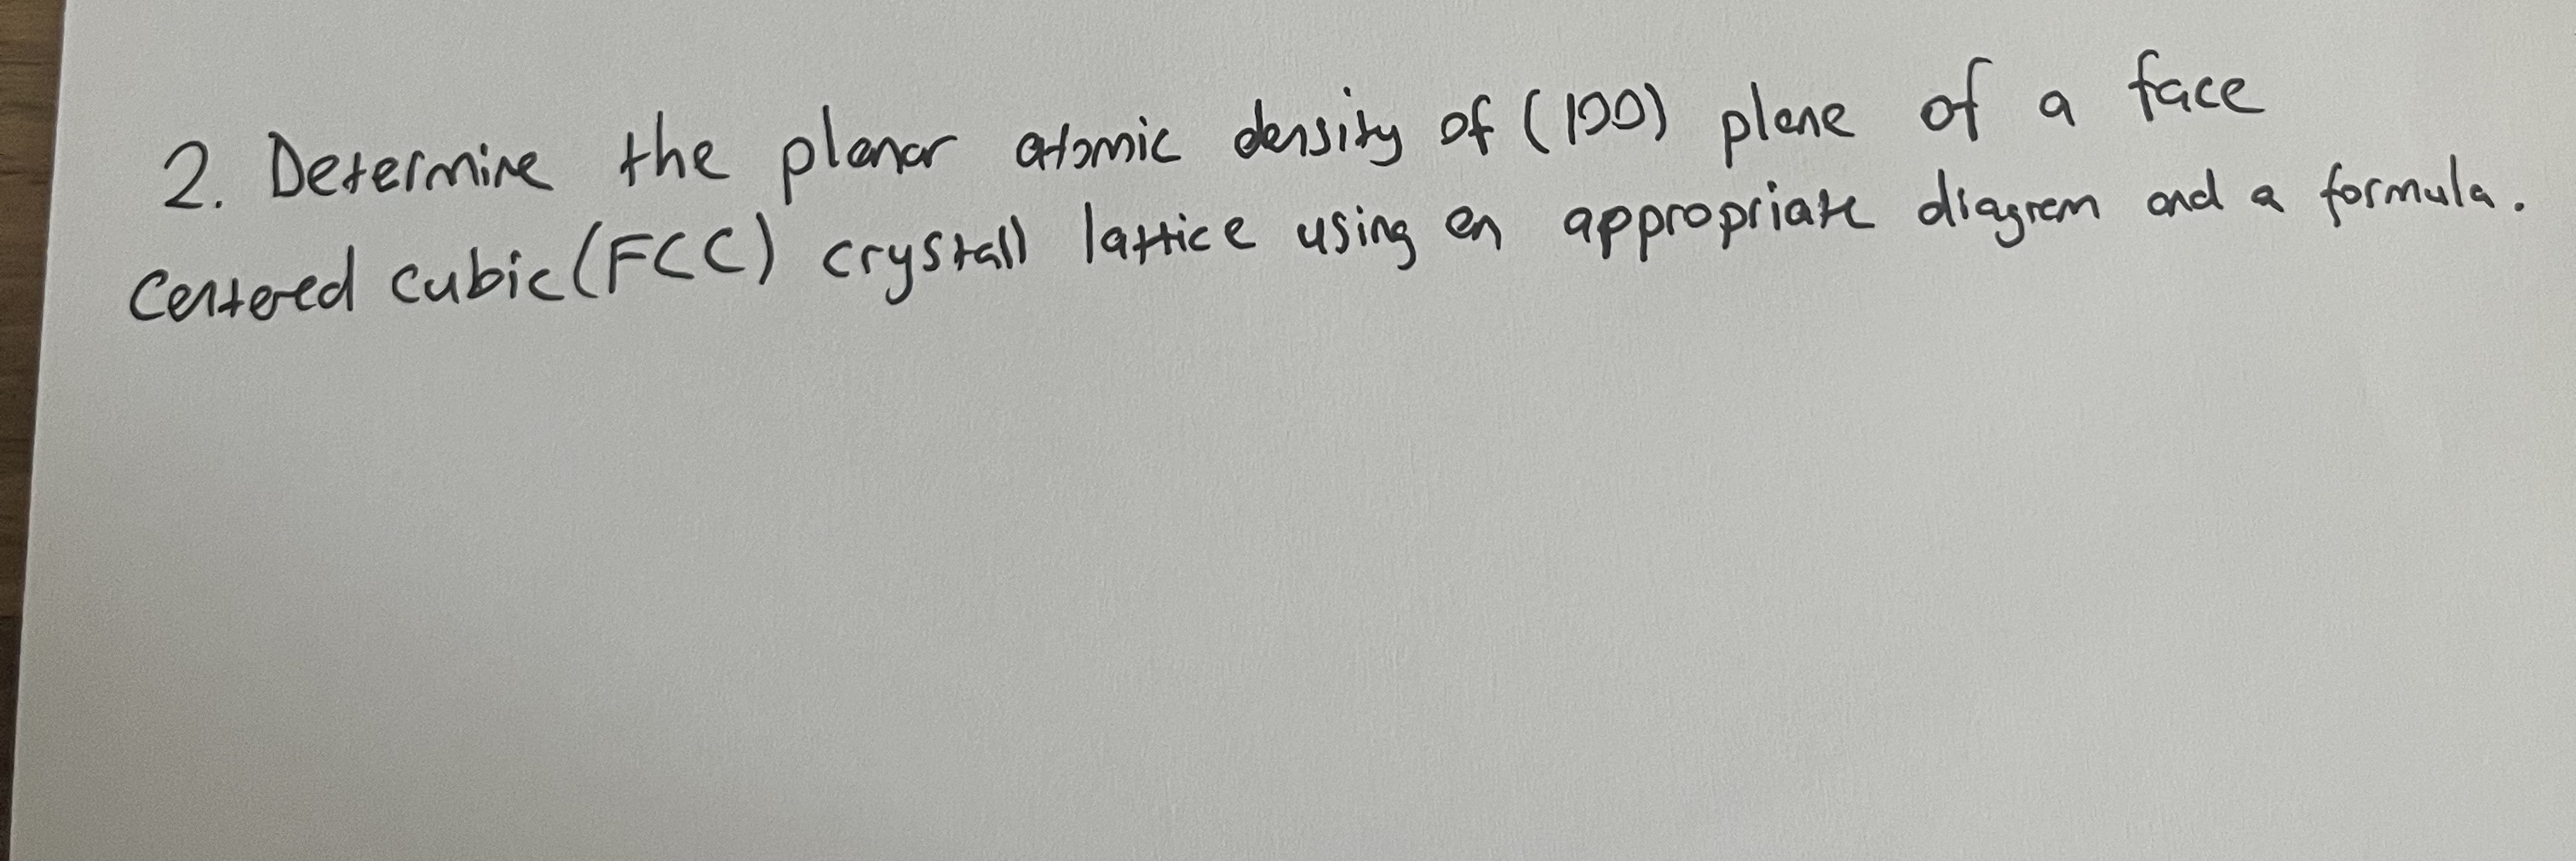 2. Determine the planar atomic density of (100) plane of a face
Centered cubic (FCC) crystall lattice using an appropriate diagram and a formula.